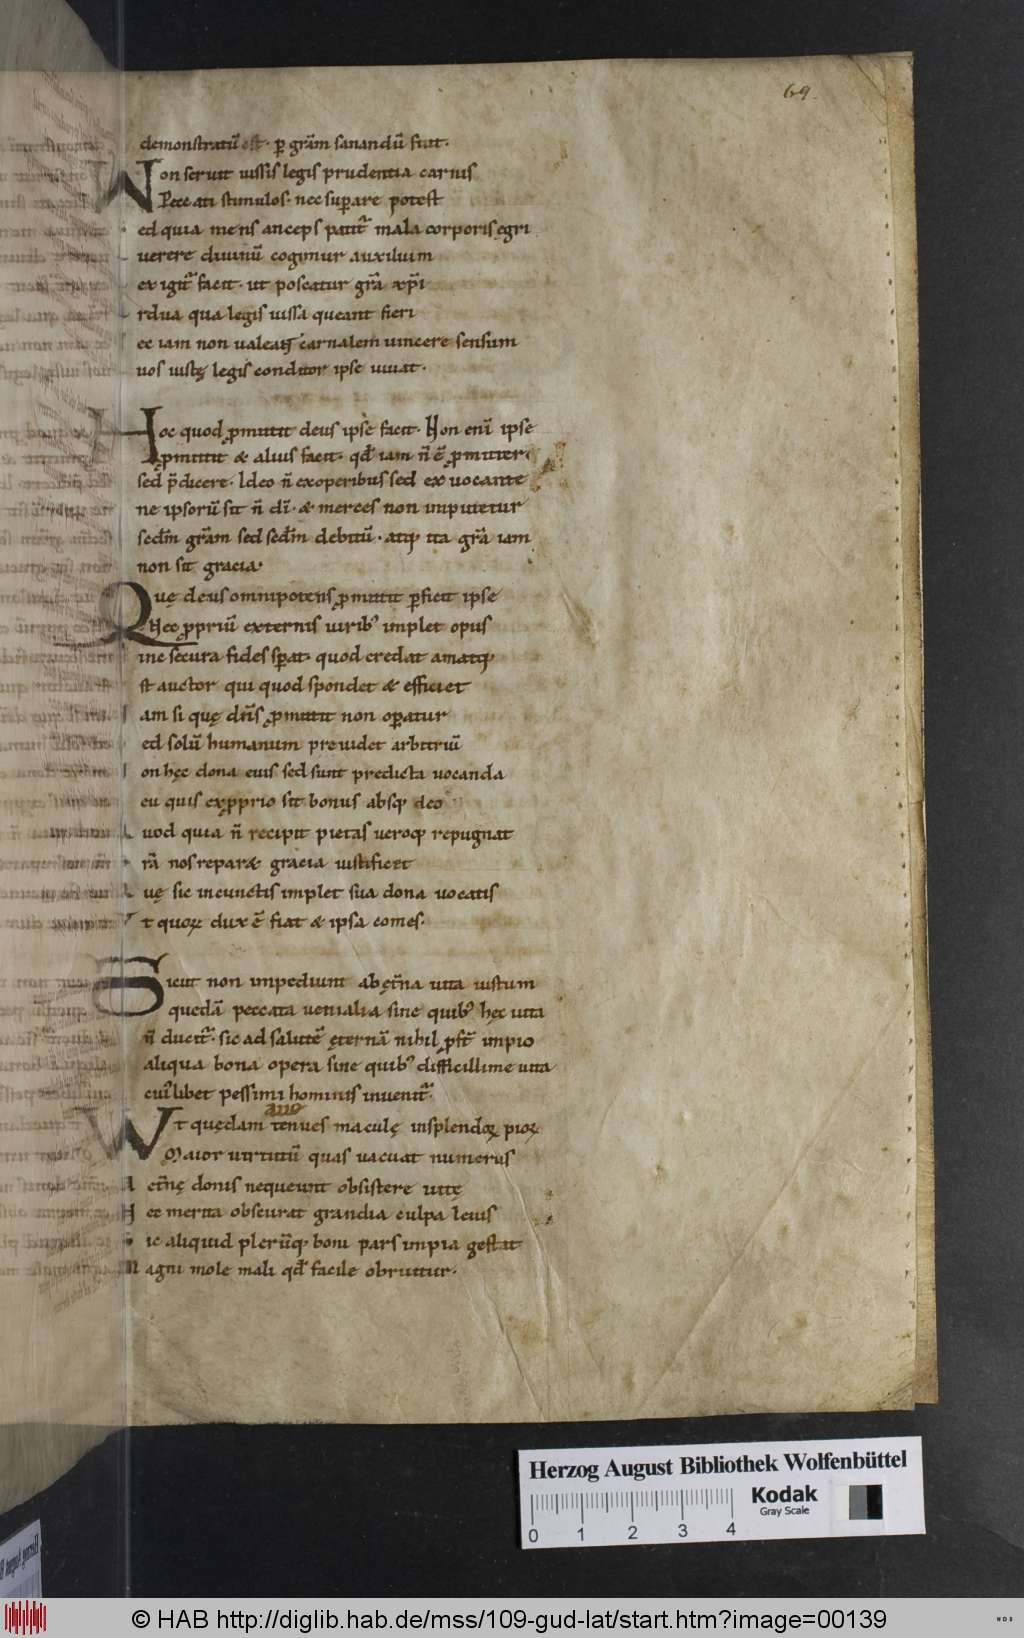 69.
demonstratū est· ꝑ grām sanandū fiat·
Non seruit iussis legis prudentia carnis
Peccati stimulos· nec suꝑare potest
ed quia mens anceps patit᷑ mala corporis ęgri
uerere diuinū cogimur auxilium
ex igit᷑ facit· ut poscatur grā xp̄i
rdua qua legis iussa queant fieri
ec iam non ualeat carnalem uincere sensum
uos iustę legis conditor ipse uiuat·
Hoc quod ꝓmittit deus ipse facit· Non enī ipse
ꝓmittit & alius facit· qd̄ iam n̄ ē ꝓmittere
sed p̄dicere· Ideo n̄ ex operibus sed ex uocante
ne ipsorū sit n̄ dī· & merces non imputetur
secdm̄ grām sed secdm̄ debitū· atq; ita grā iam
non sit gracia·
Quę deus omnipotens ꝓmittit ꝑficit ipse
Nec ꝓpriū externis uirib; implet opus
ine secura fides sꝑat· quod credat amatq;
st auctor qui quod spondet & efficiet
am si quę dn̄s ꝓmittit non oꝑatur
ed solū humanum preuidet arbitriū
on hęc dona eius sed sunt predicta uocanda
eu quis ex ꝓprio sit bonus absq; deo
uod quia n̄ recipit pietas ueroq; repugnat
rā nos repar& gracia iustificet
uę sic in cunctis implet sua dona uocatis
t quoꝝ dux ē fiat & ipsa comes·
Sicut non impediunt ab ęt̄na uita iustum
quedā peccata uenialia sine quib; hęc uita
n̄ ducit᷑· sic ad salutē ęternā nihil ꝓst̄ impio
aliqua bona opera sine quib; difficillime uita
cui᷒libet pessimi hominis inuenit᷑·
Vt quędam tenues maculę in splendoꝝ pioꝝ
Maior uirtutū quas uacuat numerus
A et̄nę donis nequeunt obsistere uitę
N ec merita obscurat grandia culpa leuis
S ic aliquid plerūq; boni pars impia gestat
M agni mole mali qd̄ facile obruitur·
Herzog August Bibliothek Wolfenbüttel
Kodak
Gray Scale
0 1 2 3 4
© HAB http://diglib.hab.de/mss/109-gud-lat/start.htm?image=00139